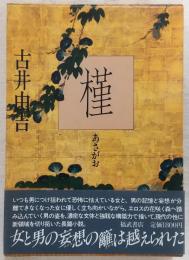 古井由吉
槿
あさがお
いつも男につけ狙われて恐怖に怯えている女と、男の記憶と妄想が分
離できなくなった女に優しく立ち向かいながら、エロスの花咲く森へ踏
み込んでいく男の姿を、濃密な文体と強靱な構築力で描いて、現代の性に
新領域を切り拓いた長篇小説。
福武書店 定価1800円
女と男の妄想の籬は越えられた